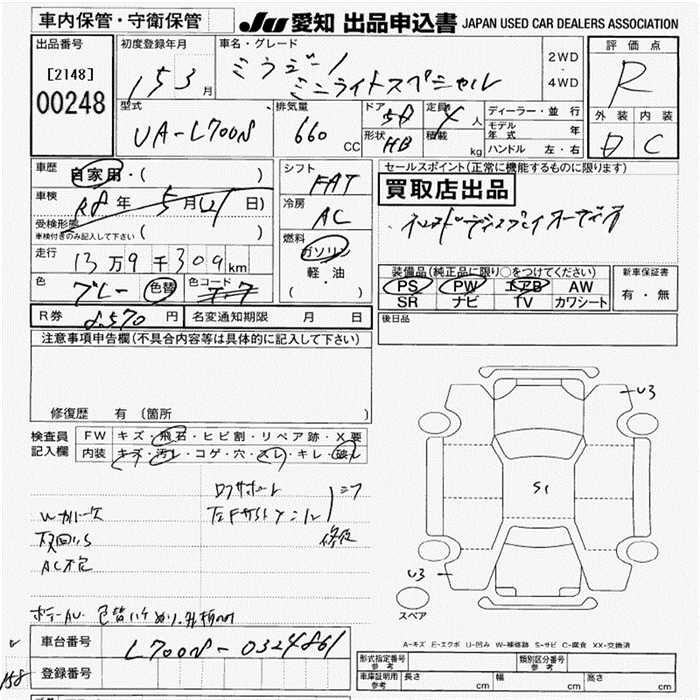 車内保管・守衛保管
JU 愛知 出品申込書 JAPAN USED CAR DEALERS ASSOCIATION
出品番号
[2148]
00248
初度登録年月
15 3 月
車名・グレード
ミラジーノ
ミニライトスペシャル
2WD
・
4WD
評価点
R
外装 内装
D C
型式
UA-L700S
排気量
660 CC
ドア
5D
形状
HB
定員
4 人
積載
kg
ディーラー・並行
モデル年式 年
ハンドル 左・右
車歴
自家用・( )
車検
R8 年 5 月(21 日)
受検形態
車検付きのみ記入して下さい ( )
走行
13万9千309km
色
グレー 色替
色コード
R券
8,570 円
名変通知期限 月 日
シフト
FAT
冷房
AC
燃料
ガソリン
軽・油
( ・ )
セールスポイント(正常に機能するものに限ります)
買取店出品
装備品(純正品に限り○をつけてください)
PS PW エアB AW
SR ナビ TV カワシート
新車保証書
有・無
後日品
注意事項申告欄(不具合内容等は具体的に記入して下さい)
修復歴 有(箇所 )
検査員
記入欄
FW キズ・飛石・ヒビ割・リペア跡・X要
内装 キズ・汚レ・コゲ・穴・スレ・キレ・破レ
修復
AC不良
U3
S1
U3
スペア
A-キズ E-エクボ U-凹み W-補修跡 S-サビ C-腐食 XX-交換済
車台番号
L700S-0324861
登録番号
158
形式指定番号
参考
類別区分番号
参考
車庫証明用
参考
長さ cm 幅 cm 高さ cm